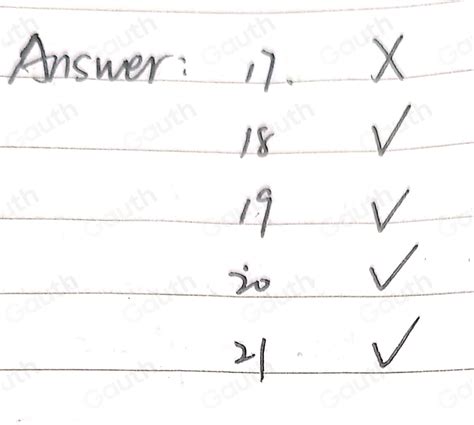 Answer: 17. X
18 ✓
19 ✓
20 ✓
21 ✓